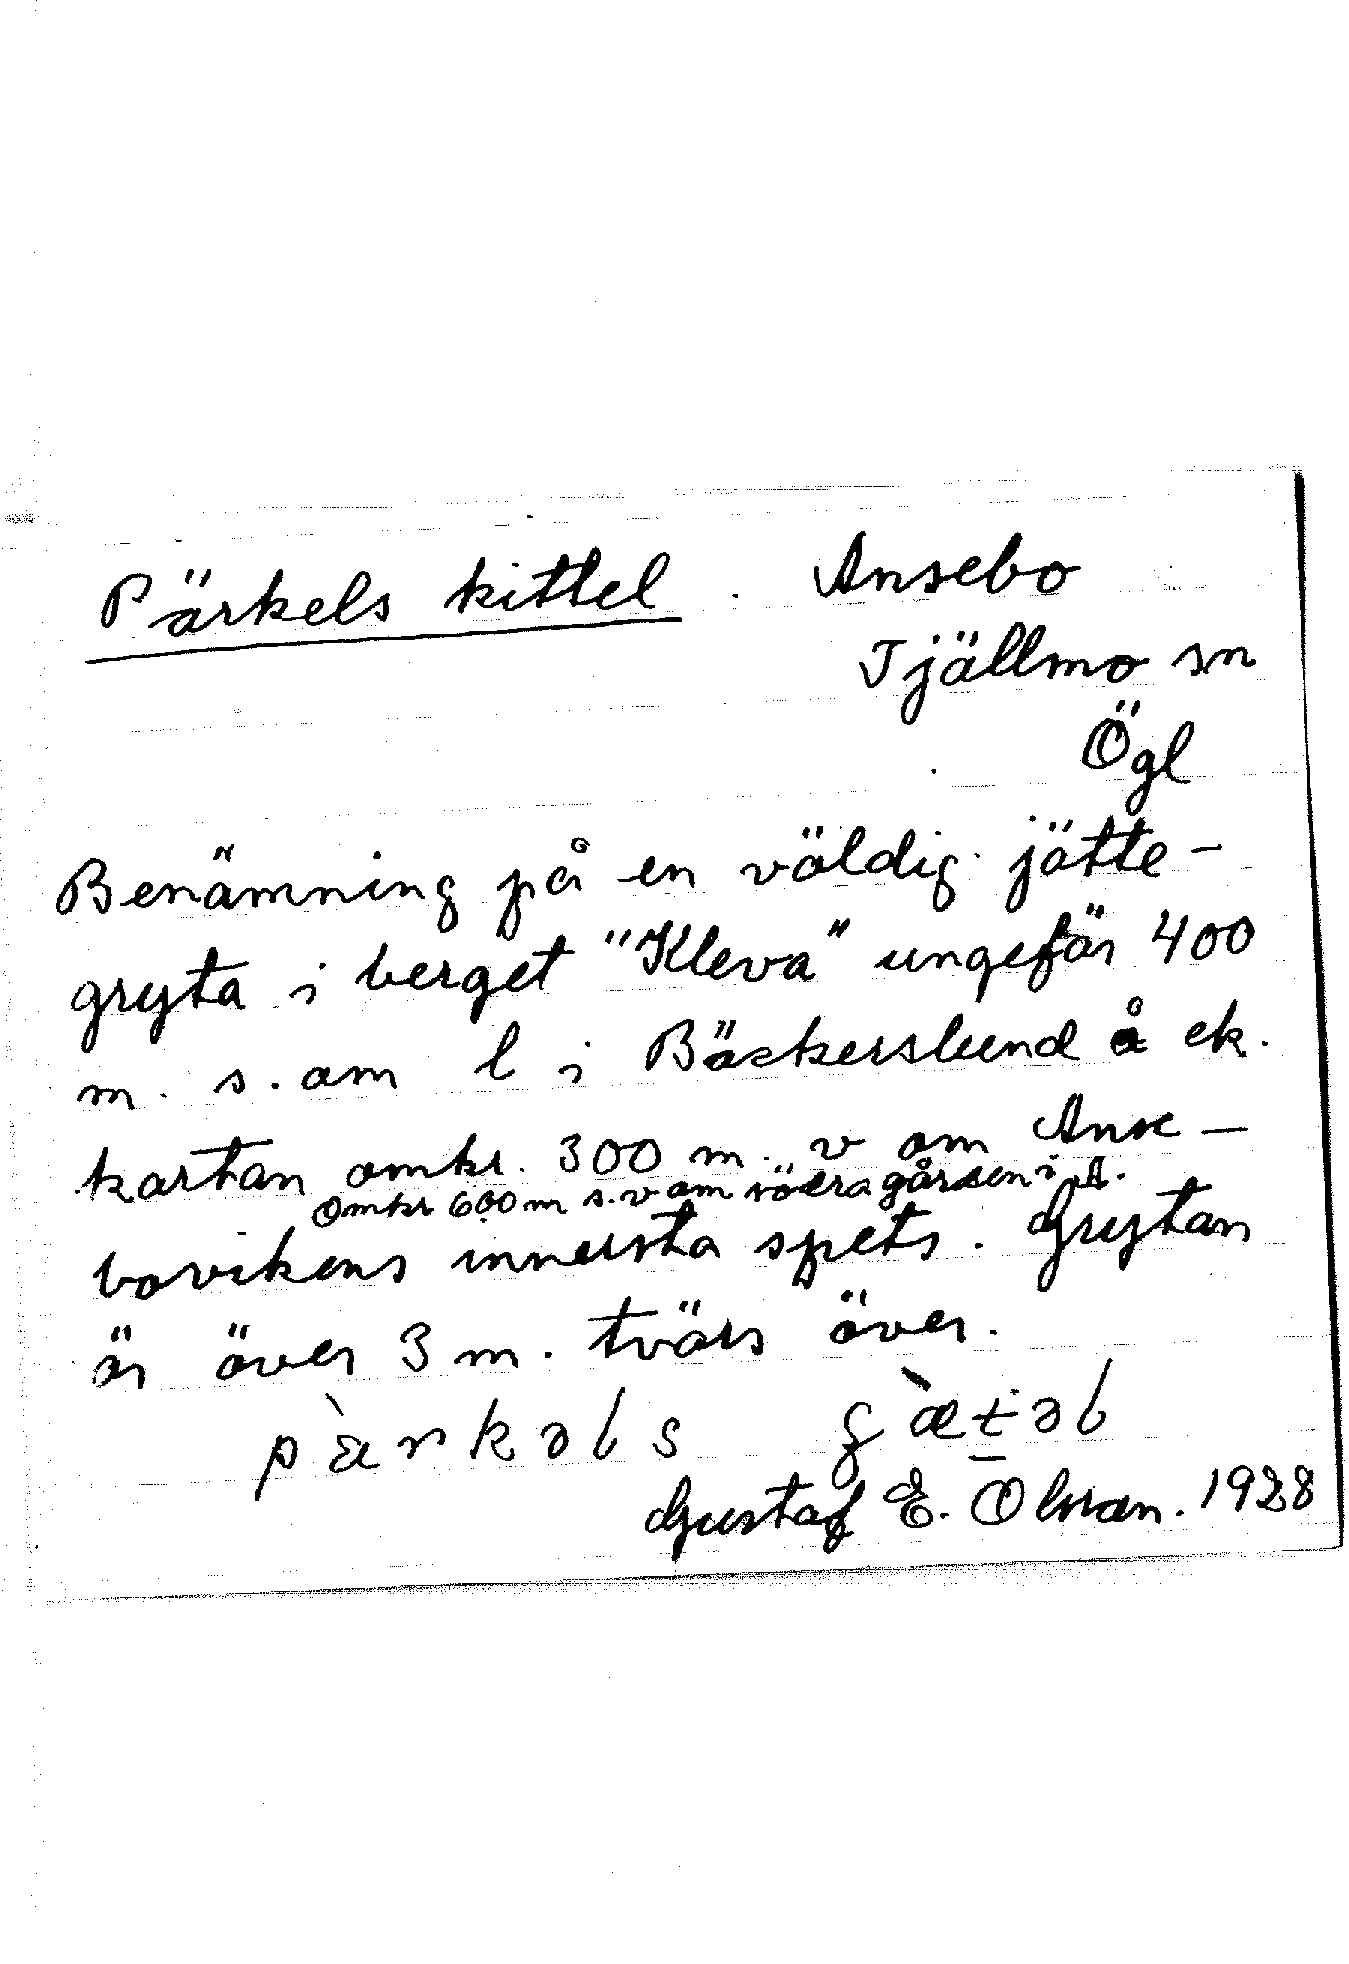 Pärkels kittel. Ansebo
Tjällmo sn
Ögl
Benämning på en väldig jätte-
gryta i berget "Kleva" ungefär 400
m. s. om l i Bäckerslund å ek.
kartan omkr. 300 m. v om Anse-
Omkr 600 m s.v om södra gården i A.
bovikens innersta spets. Grytan
är över 3 m. tvärs över.
Gustaf E. Olsson. 1928